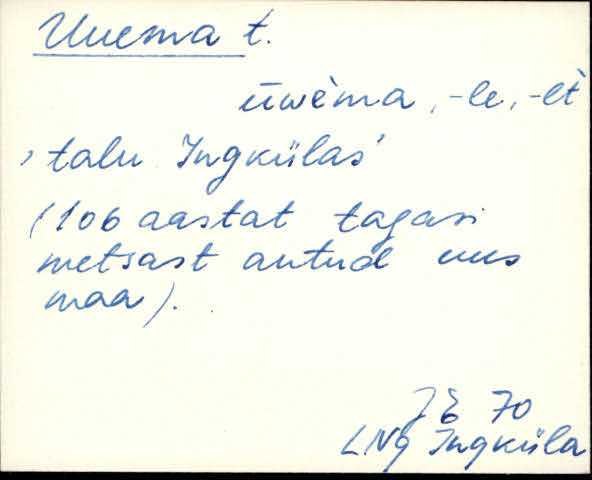 Uuema t.
ūwèma, -le, -lt
, talu Ingkülas'
(106 aastat tagasi
metsast antud uus
maa).
JË 70
LNg Ingküla